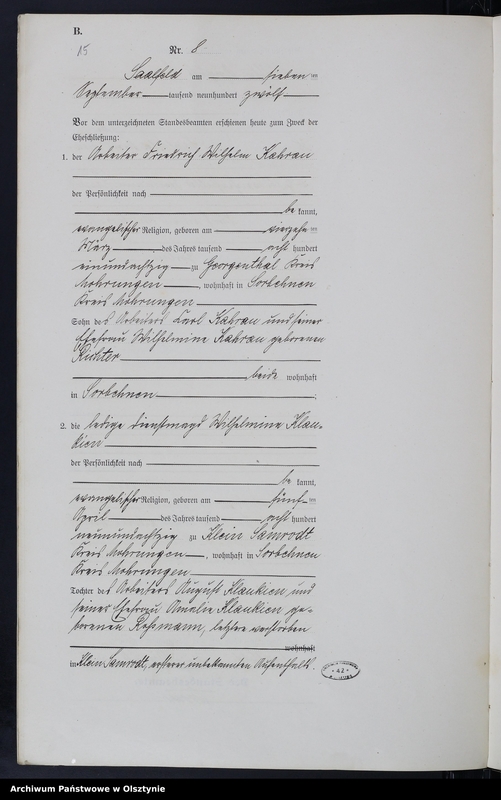 B.
15
Nr. 8
Saalfeld am sieben ten
September tausend neunhundert zwölf
Vor dem unterzeichneten Standesbeamten erschienen heute zum Zweck der
Eheschließung:
1. der Arbeiter Friedrich Wilhelm Kahrau
der Persönlichkeit nach
be kannt,
evangelischer Religion, geboren am vierzehn ten
März des Jahres tausend acht hundert
einundachtzig zu Georgenthal Kreis
Mohrungen, wohnhaft in Sorbehnen
Kreis Mohrungen
Sohn des Arbeiters Karl Kahrau und seiner
Ehefrau Wilhelmine Kahrau geborenen
Richter
beide wohnhaft
in Sorbehnen;
2. die ledige Dienstmagd Wilhelmine Klau-
kien
der Persönlichkeit nach
be kannt,
evangelischer Religion, geboren am fünf ten
April des Jahres tausend acht hundert
neunundachtzig zu Klein Samrodt
Kreis Mohrungen, wohnhaft in Sorbehnen
Kreis Mohrungen
Tochter des Arbeiters August Klaukien und
seiner Ehefrau Amalie Klaukien ge-
borenen, letztere verstorben
wohnhaft
in Klein Samrodt, ersterer unbekannten Aufenthalts.
42
Archiwum Państwowe w Olsztynie